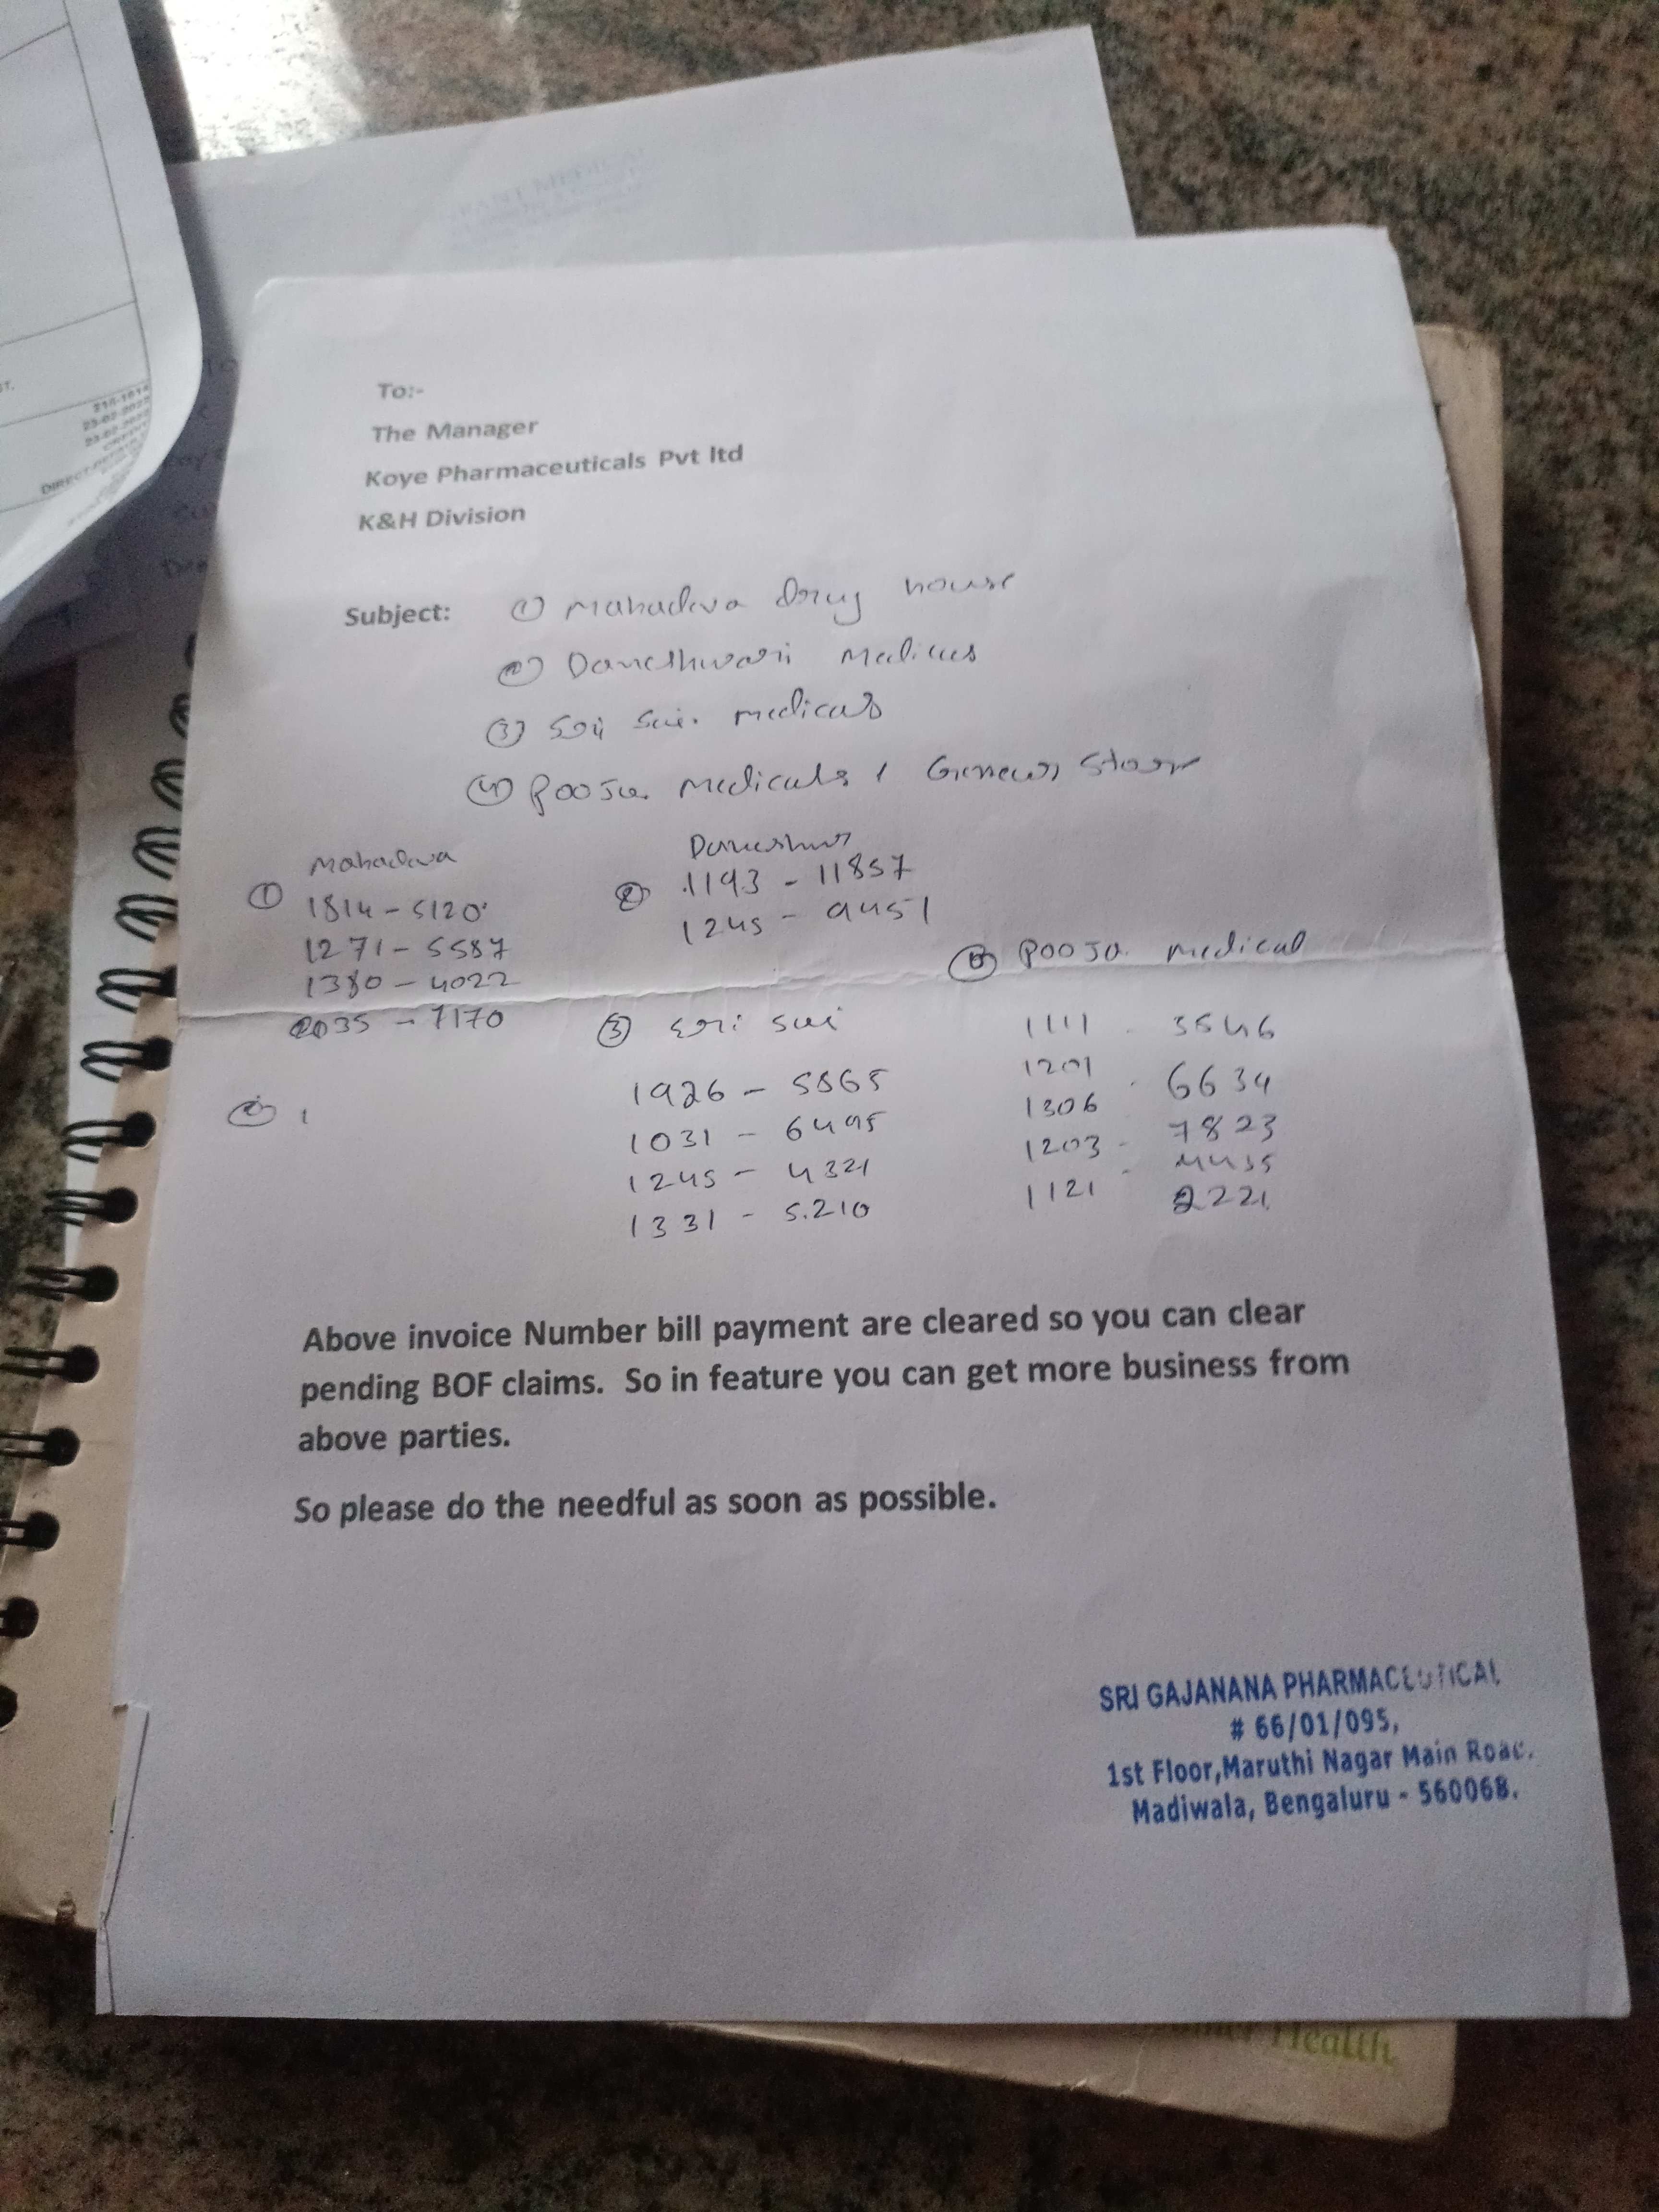 To:-
The Manager
Koye Pharmaceuticals Pvt ltd
K&H Division
Subject: ① Mahadeva drug house
② Daneshwari Medicals
③ Sri Sai. medicals
④ Pooja Medicals & General Store
Mahadeva
① 1814 - 5120
1271 - 5587
1380 - 4022
2035 - 7170
②
② 1193 - 11857
1245 - 9451
③ Sri Sai
1926 - 5865
1031 - 6495
1245 - 4321
1331 - 5.210
Pooja medical
1111 - 3546
1201 - 6634
1306 7823
1203 - 4435
1121 - 2221
Above invoice Number bill payment are cleared so you can clear
pending BOF claims. So in feature you can get more business from
above parties.
So please do the needful as soon as possible.
SRI GAJANANA PHARMACEUTICAL
# 66/01/095,
1st Floor,Maruthi Nagar Main Road.
Madiwala, Bengaluru - 560068.
Health